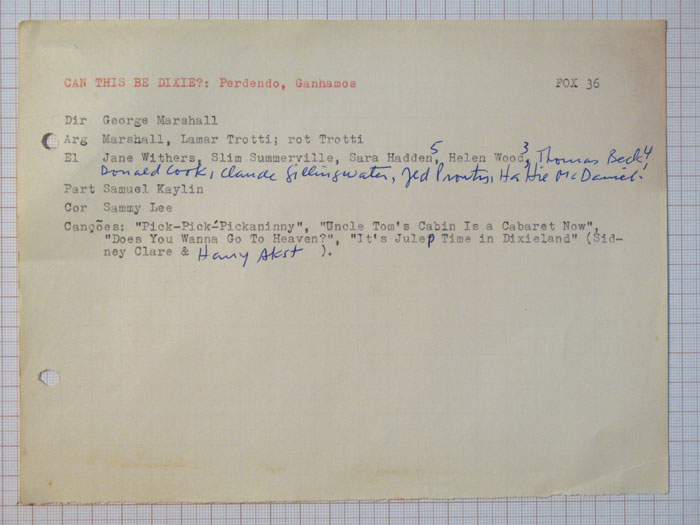 CAN THIS BE DIXIE?: Perdendo, Ganhamos FOX 36
Dir George Marshall
Arg Marshall, Lamar Trotti; rot Trotti
El Jane Withers, Slim Summerville, Sara Hadden,5 Helen Wood,3 Thomas Beck,4
Donald Cook, Claude Gillingwater, Jed Prouty, Hattie McDaniel.
Part Samuel Kaylin
Cor Sammy Lee
Canções: "Pick-Pick-Pickaninny", "Uncle Tom's Cabin Is a Cabaret Now",
"Does You Wanna Go To Heaven?", "It's Julep Time in Dixieland" (Sid-
ney Clare & Harry Akst ).